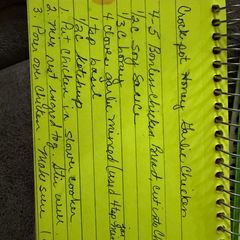 Crockpot Honey Garlic Chicken
4-5 Bonless Chicken Breast, cut into
1/2c Soy Sauce
1/3c honey
4 cloves garlic minced (used 4 tsp
1 tsp basil
1/2c ketchup
1. Put chicken in a slower cooker
2. mix rest ingred tog. stir well
3. Pour over chicken. Make sure